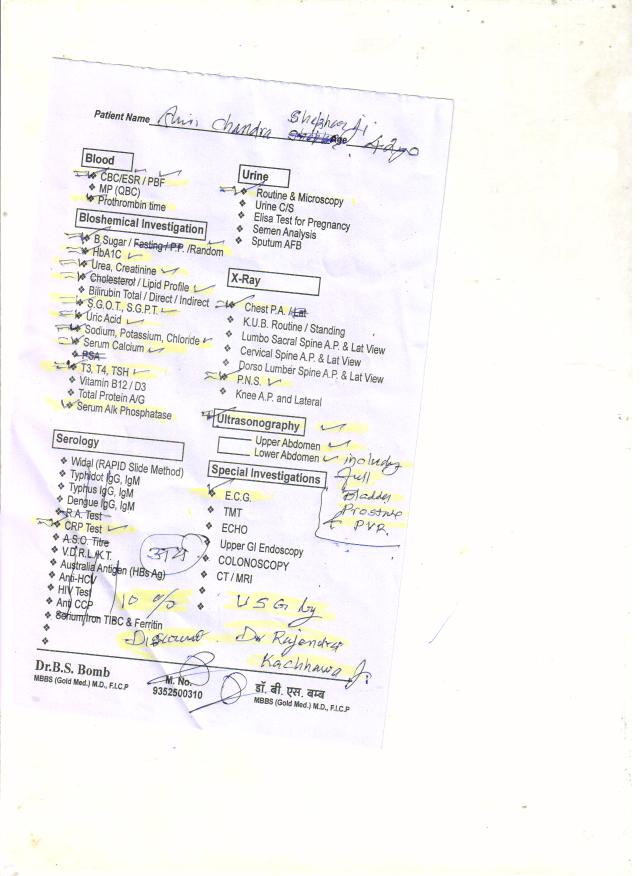 Patient Name Chandra Shekhar Ji
Age 42 yo
Blood
CBC/ESR / PBF
MP (QBC)
Prothrombin time
Bioshemical Investigation
B.Sugar / Fasting / P.P. /Random
HbA1C
Urea, Creatinine
Cholesterol / Lipid Profile
Bilirubin Total / Direct / Indirect
S.G.O.T., S.G.P.T.
Uric Acid
Sodium, Potassium, Chloride
Serum Calcium
PSA
T3, T4, TSH
Vitamin B12 / D3
Total Protein A/G
Serum Alk Phosphatase
Serology
Widal (RAPID Slide Method)
Typhidot IgG, IgM
Typhus IgG, IgM
Dengue IgG, IgM
R.A. Test
CRP Test
A.S.O. Titre
V.D.R.L./K.T.
Australia Antigen (HBs Ag)
Anti-HCV
HIV Test
Anti CCP
Serium/Iron TIBC & Ferritin
10 %
Discount
Urine
Routine & Microscopy
Urine C/S
Elisa Test for Pregnancy
Semen Analysis
Sputum AFB
X-Ray
Chest P.A. /Lat
K.U.B. Routine / Standing
Lumbo Sacral Spine A.P. & Lat View
Cervical Spine A.P. & Lat View
Dorso Lumber Spine A.P. & Lat View
P.N.S.
Knee A.P. and Lateral
Ultrasonography
Upper Abdomen
Lower Abdomen including
full
Bladder
Prostate
& PVR.
Special Investigations
E.C.G.
TMT
ECHO
Upper GI Endoscopy
COLONOSCOPY
CT / MRI
USG by
Dr Rajendra
Kachhawa Ji
Dr.B.S. Bomb
MBBS (Gold Med.) M.D., F.I.C.P
M. No.
9352500310
डॉ. बी. एस. बम्ब
MBBS (Gold Med.) M.D., F.I.C.P